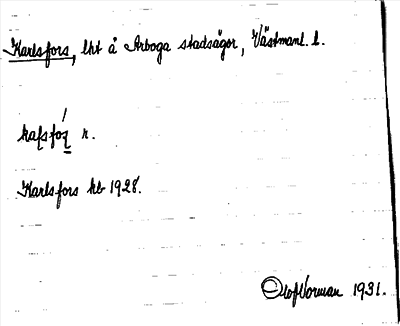 Karlsfors, lht å Arboga stadsägor, Västmanl. l.
kafsfoʐ́ n.
Karlsfors kb 1928.
Olof Norman 1931.